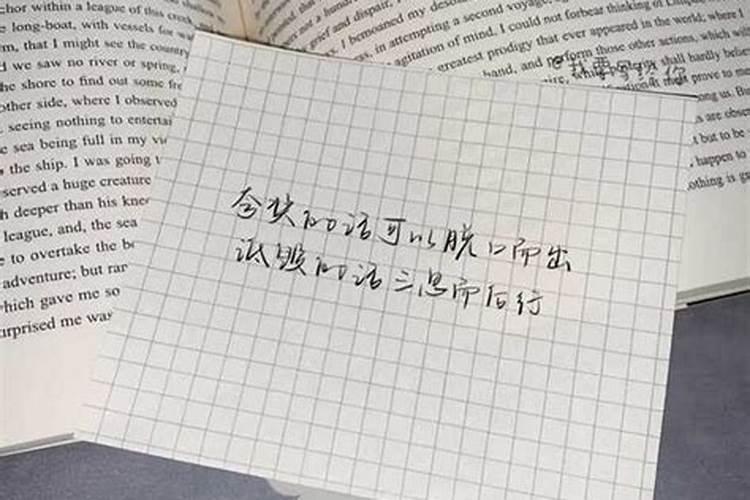 chor within a league of this creek
long-boat, with vessels for
that I might see the country
we saw no river or spring,
the shore to find out some
other side, where I observed
seeing nothing to
sea being full in my
the ship. I was going
served a huge creature
deeper than his
league, and, the sea
to overtake the
adventure; but
which gave me so
urprised me was
grief and despair,
I bemoaned my
in attempting a second voyage,
agitation of mind, I could not forbear thinking of
greatest prodigy that ever appeared in the world; where I
hand, and perform those other actions, which will
shall hardly
prove to
us. But
are
but to be
happen to
othing is
@我要写给你
夸奖的话可以脱口而出
诋毁的话三思而后行